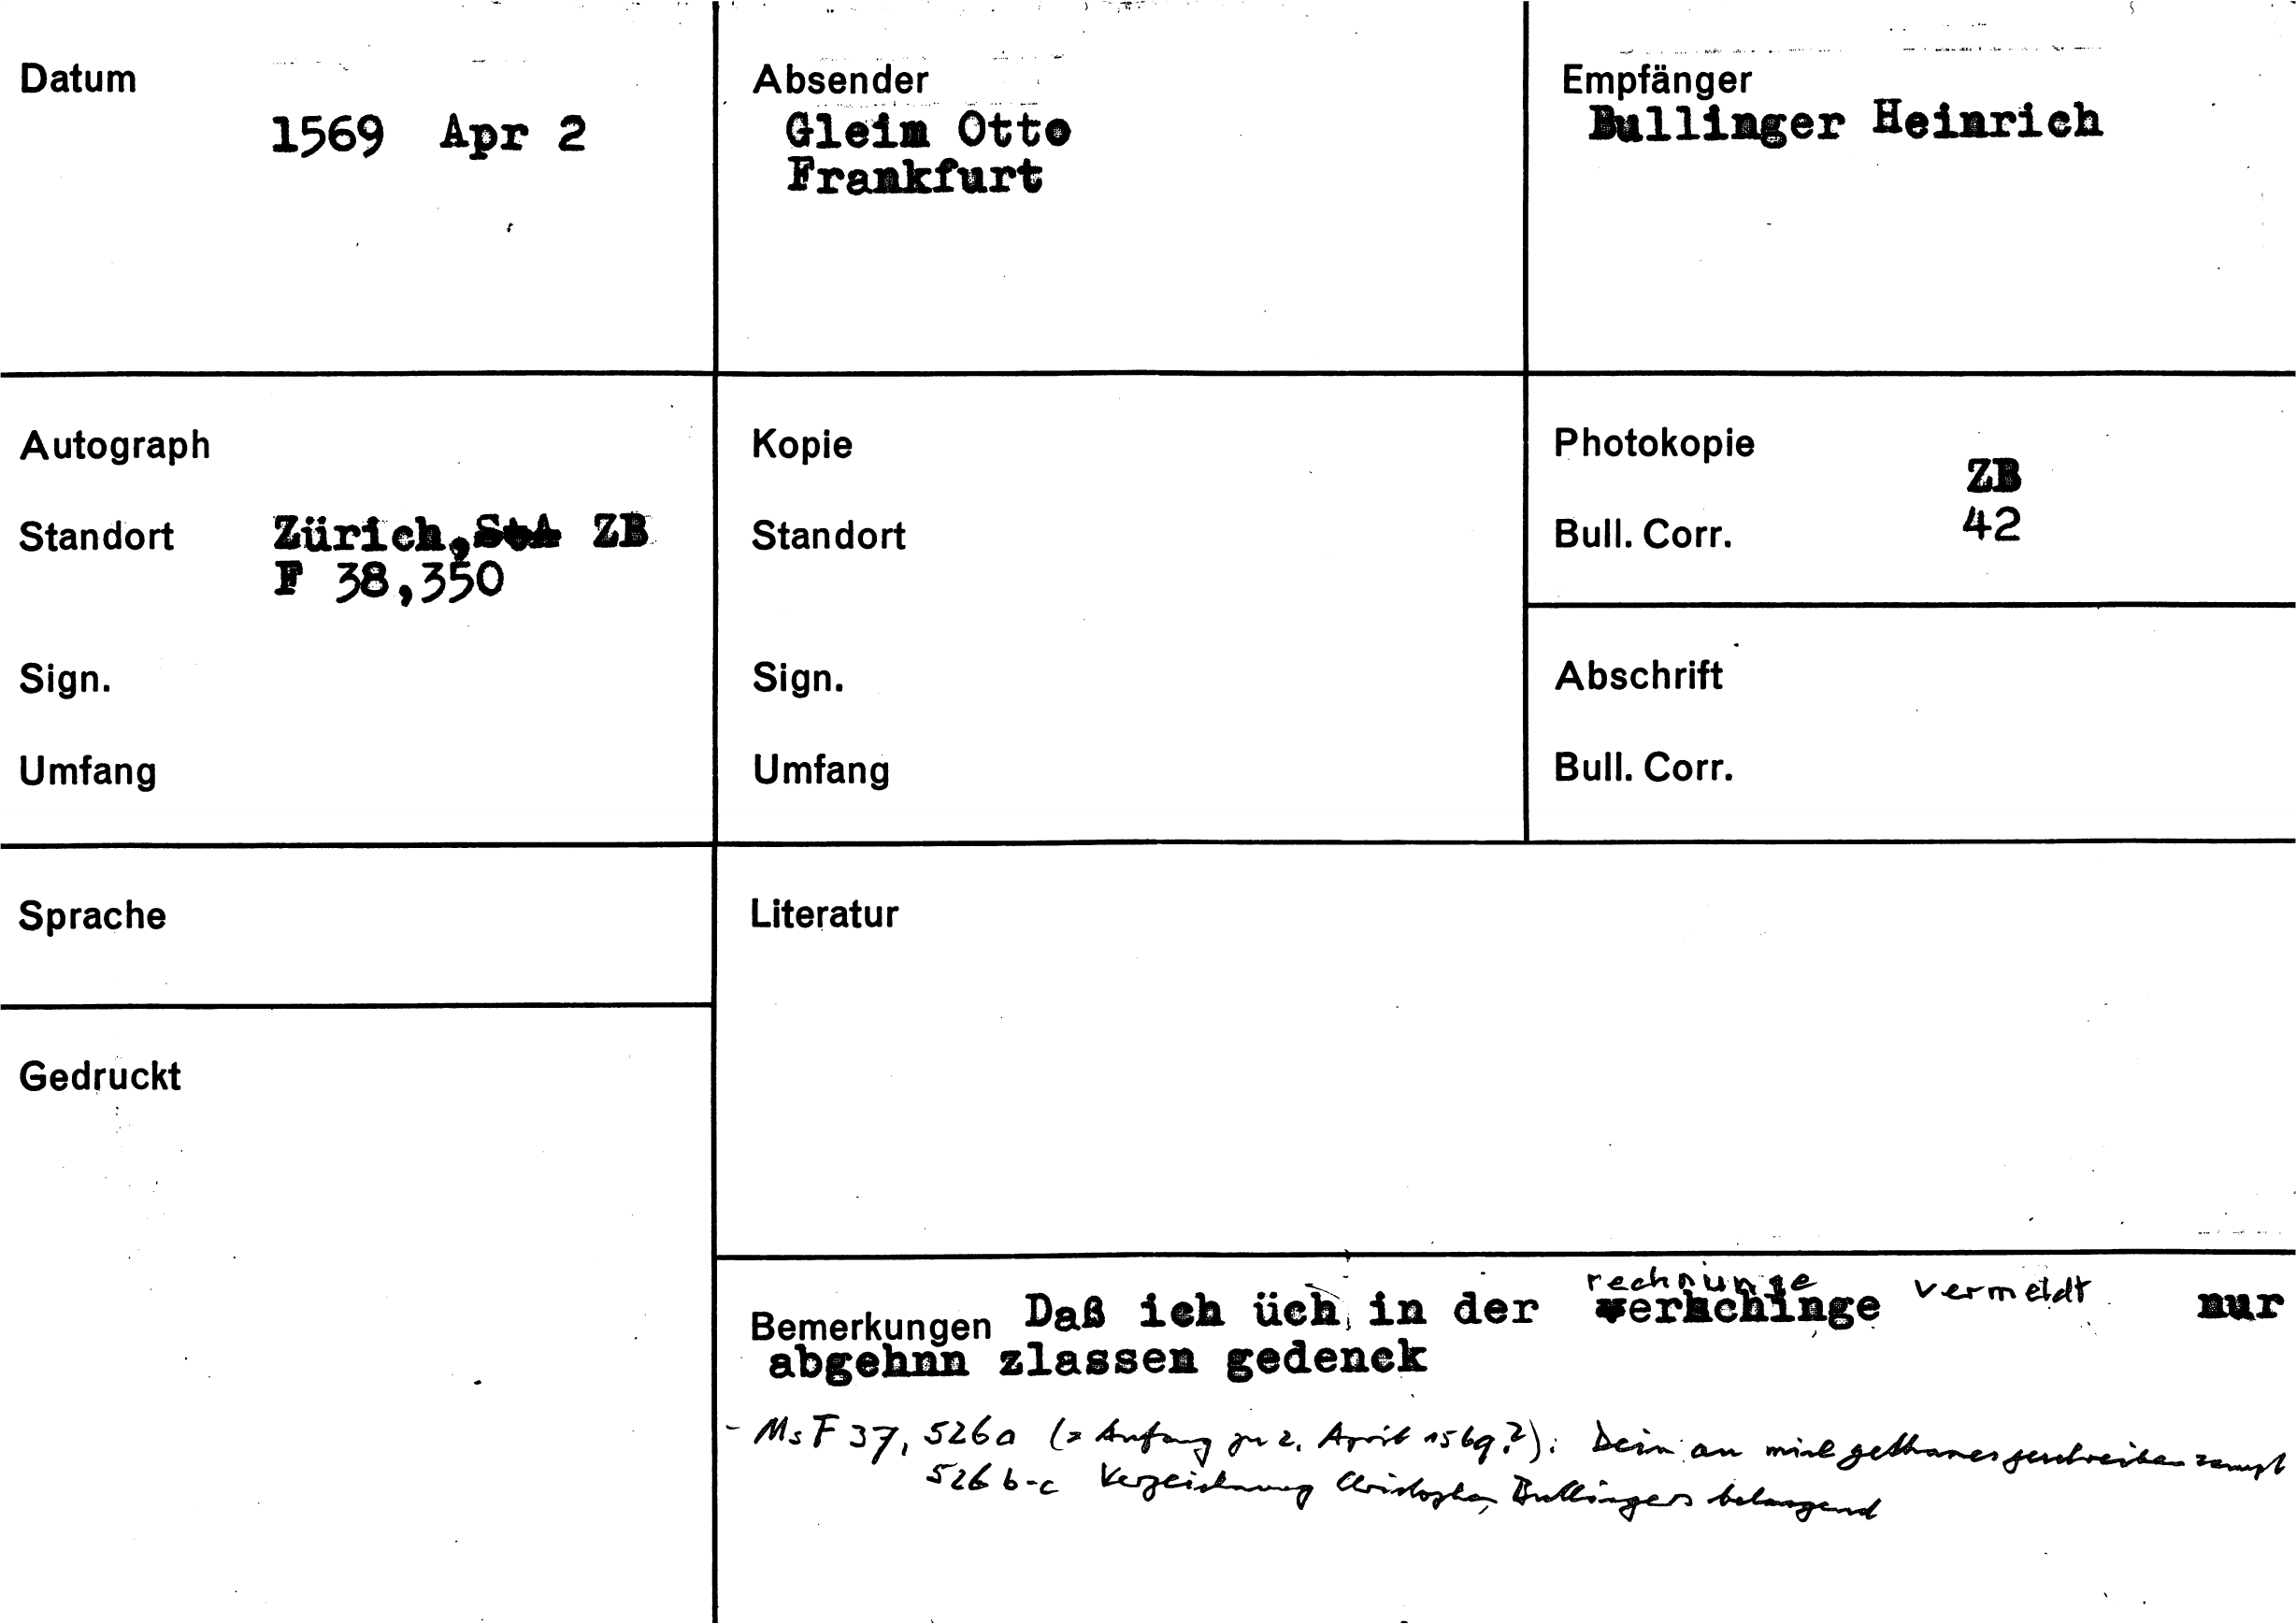 Datum
1569 Apr 2
Absender
Gleim Otto
Frankfurt
Empfänger
Bullinger Heinrich
Autograph
Standort Zürich, StA ZB
F 38,350
Sign.
Umfang
Kopie
Standort
Sign.
Umfang
Photokopie
ZB
Bull. Corr. 42
Abschrift
Bull. Corr.
Sprache
Gedruckt
Literatur
rechnunge vermeldt
Bemerkungen Daß ich üch in der nur
abgehnn zlassen gedenck
- Ms F 37, 526a (= Anfang zu 2. April 1569?): Dein an mich gethanes geschreiben sampt
526 b-c Verzeichnung Christophen Bullingers belangend